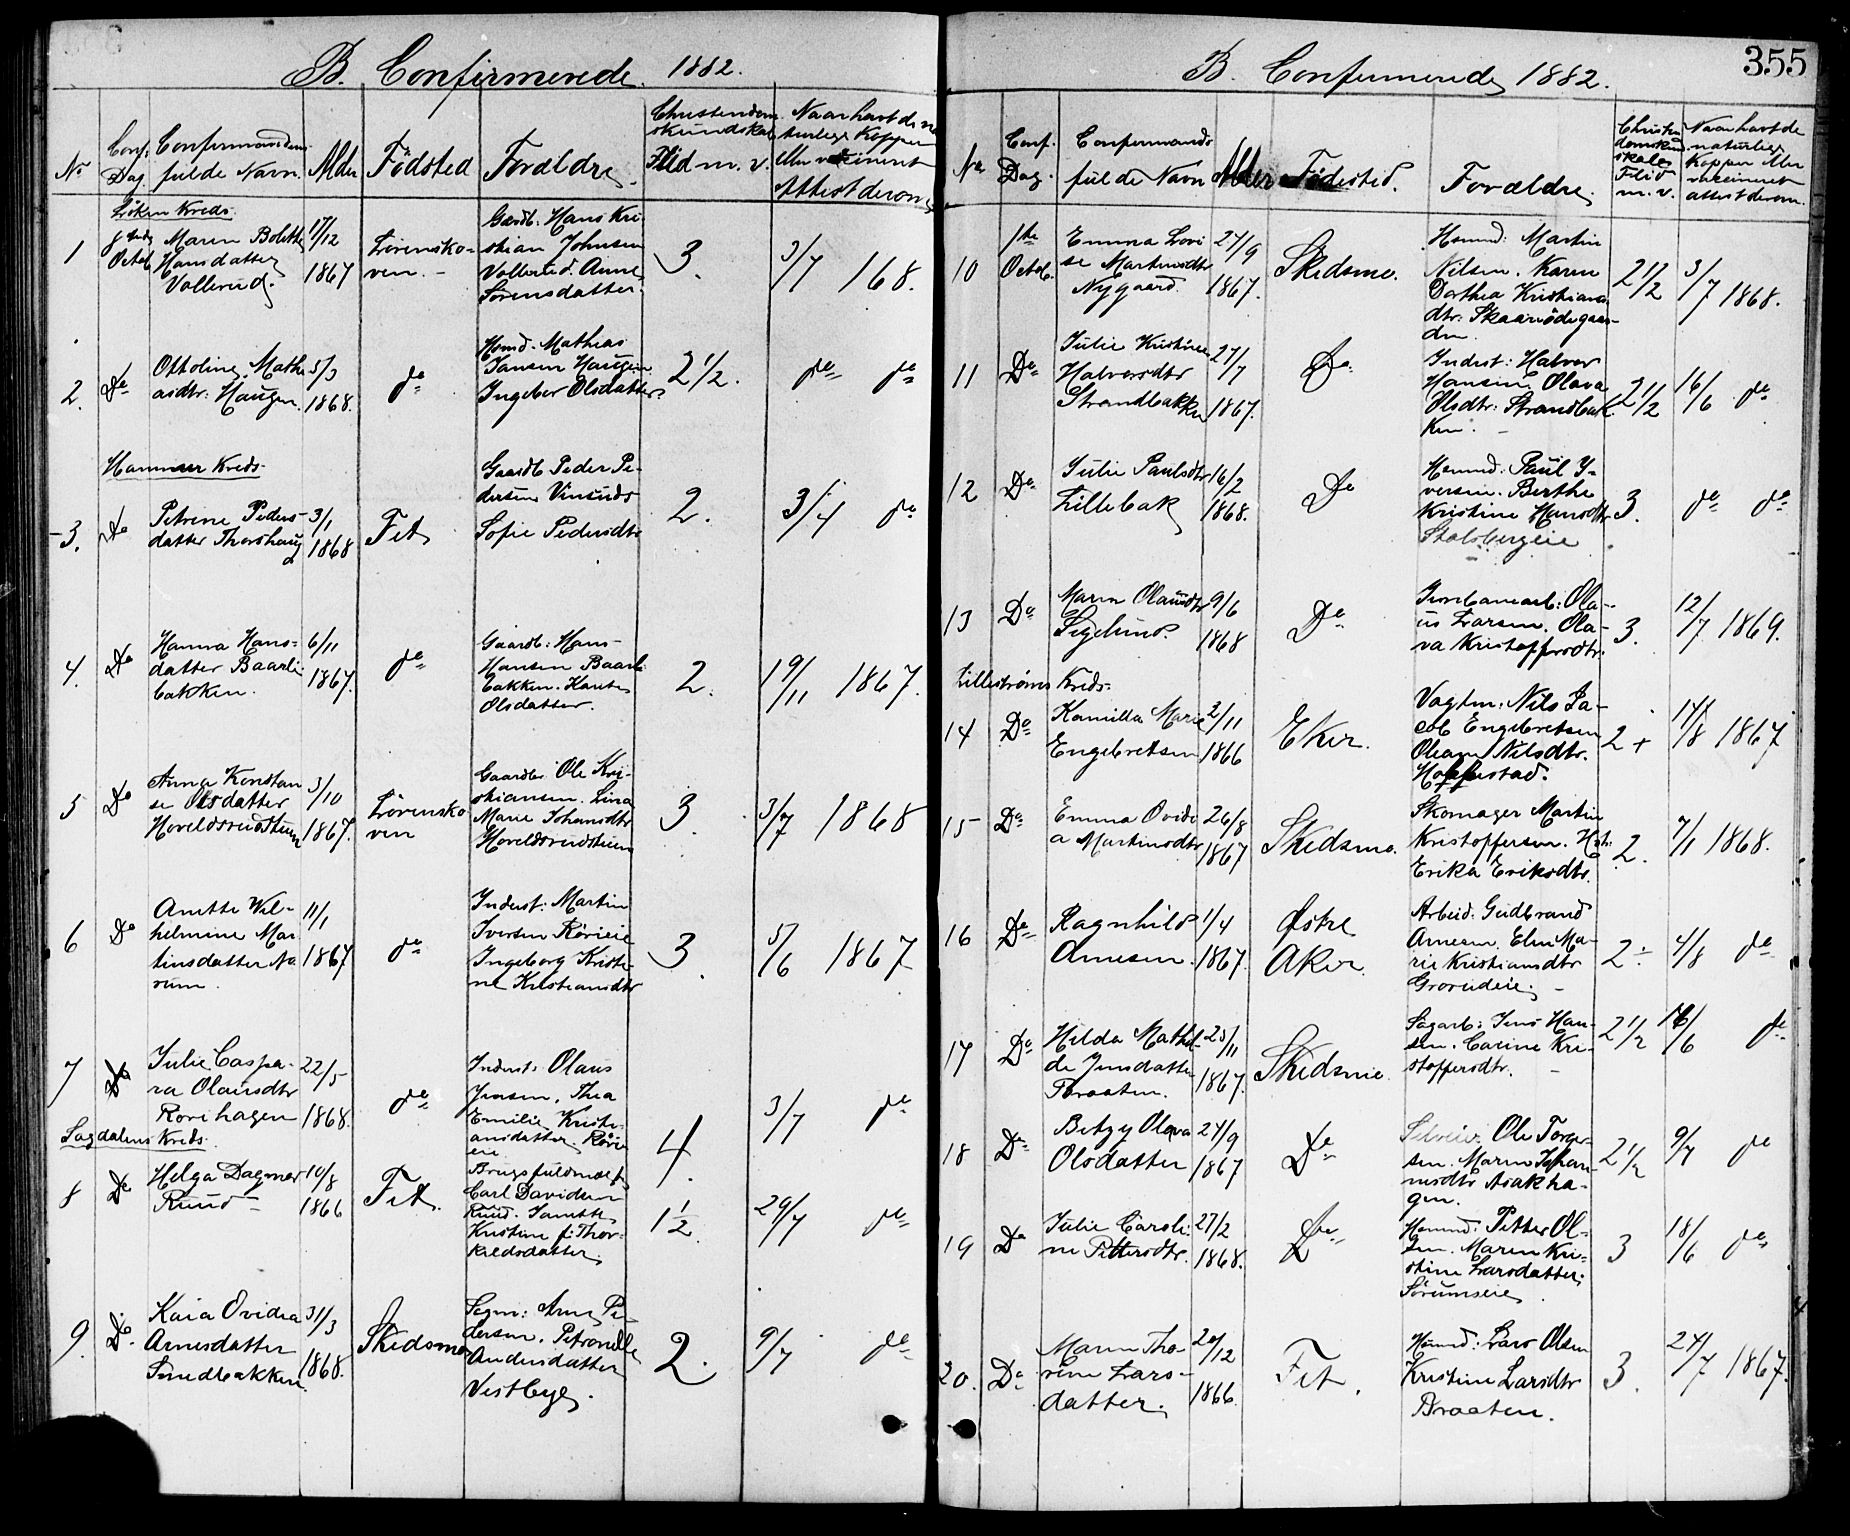 B. Confirmerede 1882.
No
Conf. Dag.
Confirmandens fulde Navn.
Alder
Födsted
Forældre
Christendomskundskab Flid m. v.
Naar havt de naturlige Kopper eller vaccineret Attest derom
Löken Kreds.
1
1ste Octob.
Maren Bolette
Hansdatter
Vollerud.
17/12
1867
Lörensko-
ven.
Gaardb. Hans Kri-
stian Johnsen
Vollerud. Anne
Sörensdatter.
3.
3/7 168.
2.
Do
Ottoline Mathi
asdtr: Haugen.
5/3
1868.
do
Hsmd. Mathias
Jansen Haugen
Ingebor Olsdatter.
2 1/2.
do do
Hammer Kreds.
3.
Do
Petrene Peders-
datter Thorshaug
3/1
1868
Fet
Gaardb Peder Pe-
dersen Vinsnds
Sofie Pedersdtr
2.
3/4 do
4.
Do
Hanna Hans-
datter Baarli-
bakken.
6/11
1867.
do
Gaardb: Hans
Hansen Baarli-
bakken. Karen
Olsdatter.
2.
19/11 1867.
5
Do
Anna Konstan
se Olsdatter
Hoveldsrudstuen
3/10
1867.
Lörensko
ven
Gaardbr. Ole Kri-
stiansen. Lina
Marie Johansdtr
Hoveldsrudstuen
3.
3/7 1868
6
Do
Anette Wil-
helmine Mar
tinsdatter No
rum.
11/1
1867
do
Inderst: Martin
Iversen Rörieie
Ingeborg Kristi-
ne Kristiansdtr
3.
5/6 1867
7
Do
Julie Caspa-
ra Olausdtr
Rorihagen
22/5
1868.
do
Inderst: Olaus
Jensen, Thea
Emilie Kristi-
ansdatter. Röri
eie
4.
3/7 do
Sagdalens Kreds.
8
Do
Helga Dagmar
Ruud
10/8
1866
Fet.
Brugsfuldmægt.
Carl Davidsen
Ruud. Janette
Kristine f. Thor-
kildsdatter.
1 1/2.
29/7 do
9.
Do.
Kaia Ovidia
Arnesdatter
Smedbakken.
31/3
1868.
Skedsmo
Sagm: Arne Pe-
dersen. Petronelle
Andersdatter
Vestbye.
2.
9/7 do
355
B. Confirmerede 1882.
No
Conf. Dag.
Confirmands fulde Navn
Alder
Födested.
Forældre
Christendomskundskab Flid m. v.
Naar havt de naturlige Kopper eller vaccineret attest derom.
10
1ste Octob.
Emma Lovi
se Martinsdtr
Nygaard.
27/9
1867.
Skedsmo.
Hsmd: Martin
Nilsen. Karen
Dorthea Kristians
dtr: Skaarödegaar-
den
2 1/2
3/7 1868.
11
Do
Julie Kristine
Halvorsdtr
Strandbakken
27/7
1867.
Do
Inderst: Halvor
Hansen. Olava
Olsdtr: Strandbak-
ken.
2 1/2
16/6 do
12
Do
Julie Paulsdtr
Lillebak
16/2
1868.
Do
Hsmd: Paul I-
versen. Berthe
Kristine Hansdtr
Stalsbergeie
3.
do do
13
Do
Maren Olausdtr
Segelund.
9/6
1868
Do
Jernbanearb: Ola-
us Larsen. Ola-
va Kristoffersdtr.
3.
12/7 1869.
Lilleströms Kreds.
14
Do
Kamilla Marie
Engebretsen
2/11
1866
Eker.
Vagtm: Nils Ja-
cob Engebretsen
Oleane Nilsdtr.
Hoffestad.
2+
17/8 1867
15
Do
Emma Ovidi
a Martinsdtr
26/8
1867
Skedsmo.
Skomager Martin
Kristoffersen. Hst:
Erika Eriksdtr.
2.
7/1 1868.
16
Do
Ragnhild
Arnesen.
1/4
1867.
Østre
Aker
Arbeid. Gudbrand
Arnesen. Elen Ma-
rie Kristiansdtr
Grorudeie.
2÷
4/8 do
17
Do
Hilda Mathil-
de Jensdatter
Braaten.
25/11
1867.
Skedsmo.
Sagarb: Jens Han-
sen. Carine Kri-
stoffersdtr.
2 1/2
16/6 do
18
Do
Betzy Olava
Olsdatter
27/9
1867
Do
Selveier Ole Torger-
sen. Maren Johan-
nesdtr Asakha-
gen.
2 1/2
9/7 do
19
Do
Julie Caroli-
ne Pettersdtr.
27/2
1868.
Do
Hsmd: Petter Ol-
sen. Maren Kri-
stine Larsdatter.
Sörumseie
3
18/6 do
20.
Do
Maren Tho-
rine Lars-
datter.
20/12
1866.
Fet.
Hsmd: Lars Olsen
Kristine Larsdtr
Braaten.
3.
27/7 1867.